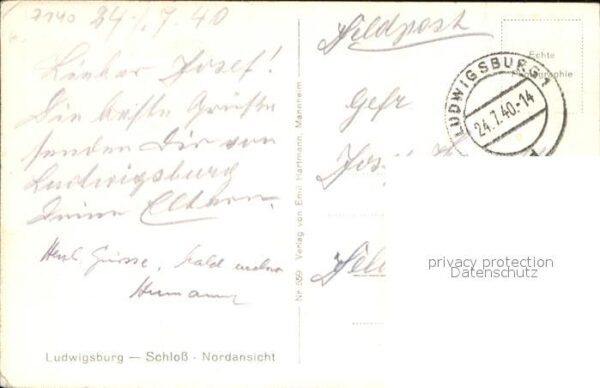 7140 24/7.40
Lieber Josef!
Die beste Grüsse
senden Dir von
Ludwigsburg
Deine Eltern.
Herzl. Grüsse, bald
Hermann
Ludwigsburg — Schloß - Nordansicht
Nr. 859 Verlag von Emil Hartmann, Mannheim
Feldpost
Echte
Photographie
LUDWIGSBURG 1
24.7.40.-14
Gefr
privacy protection
Datenschutz